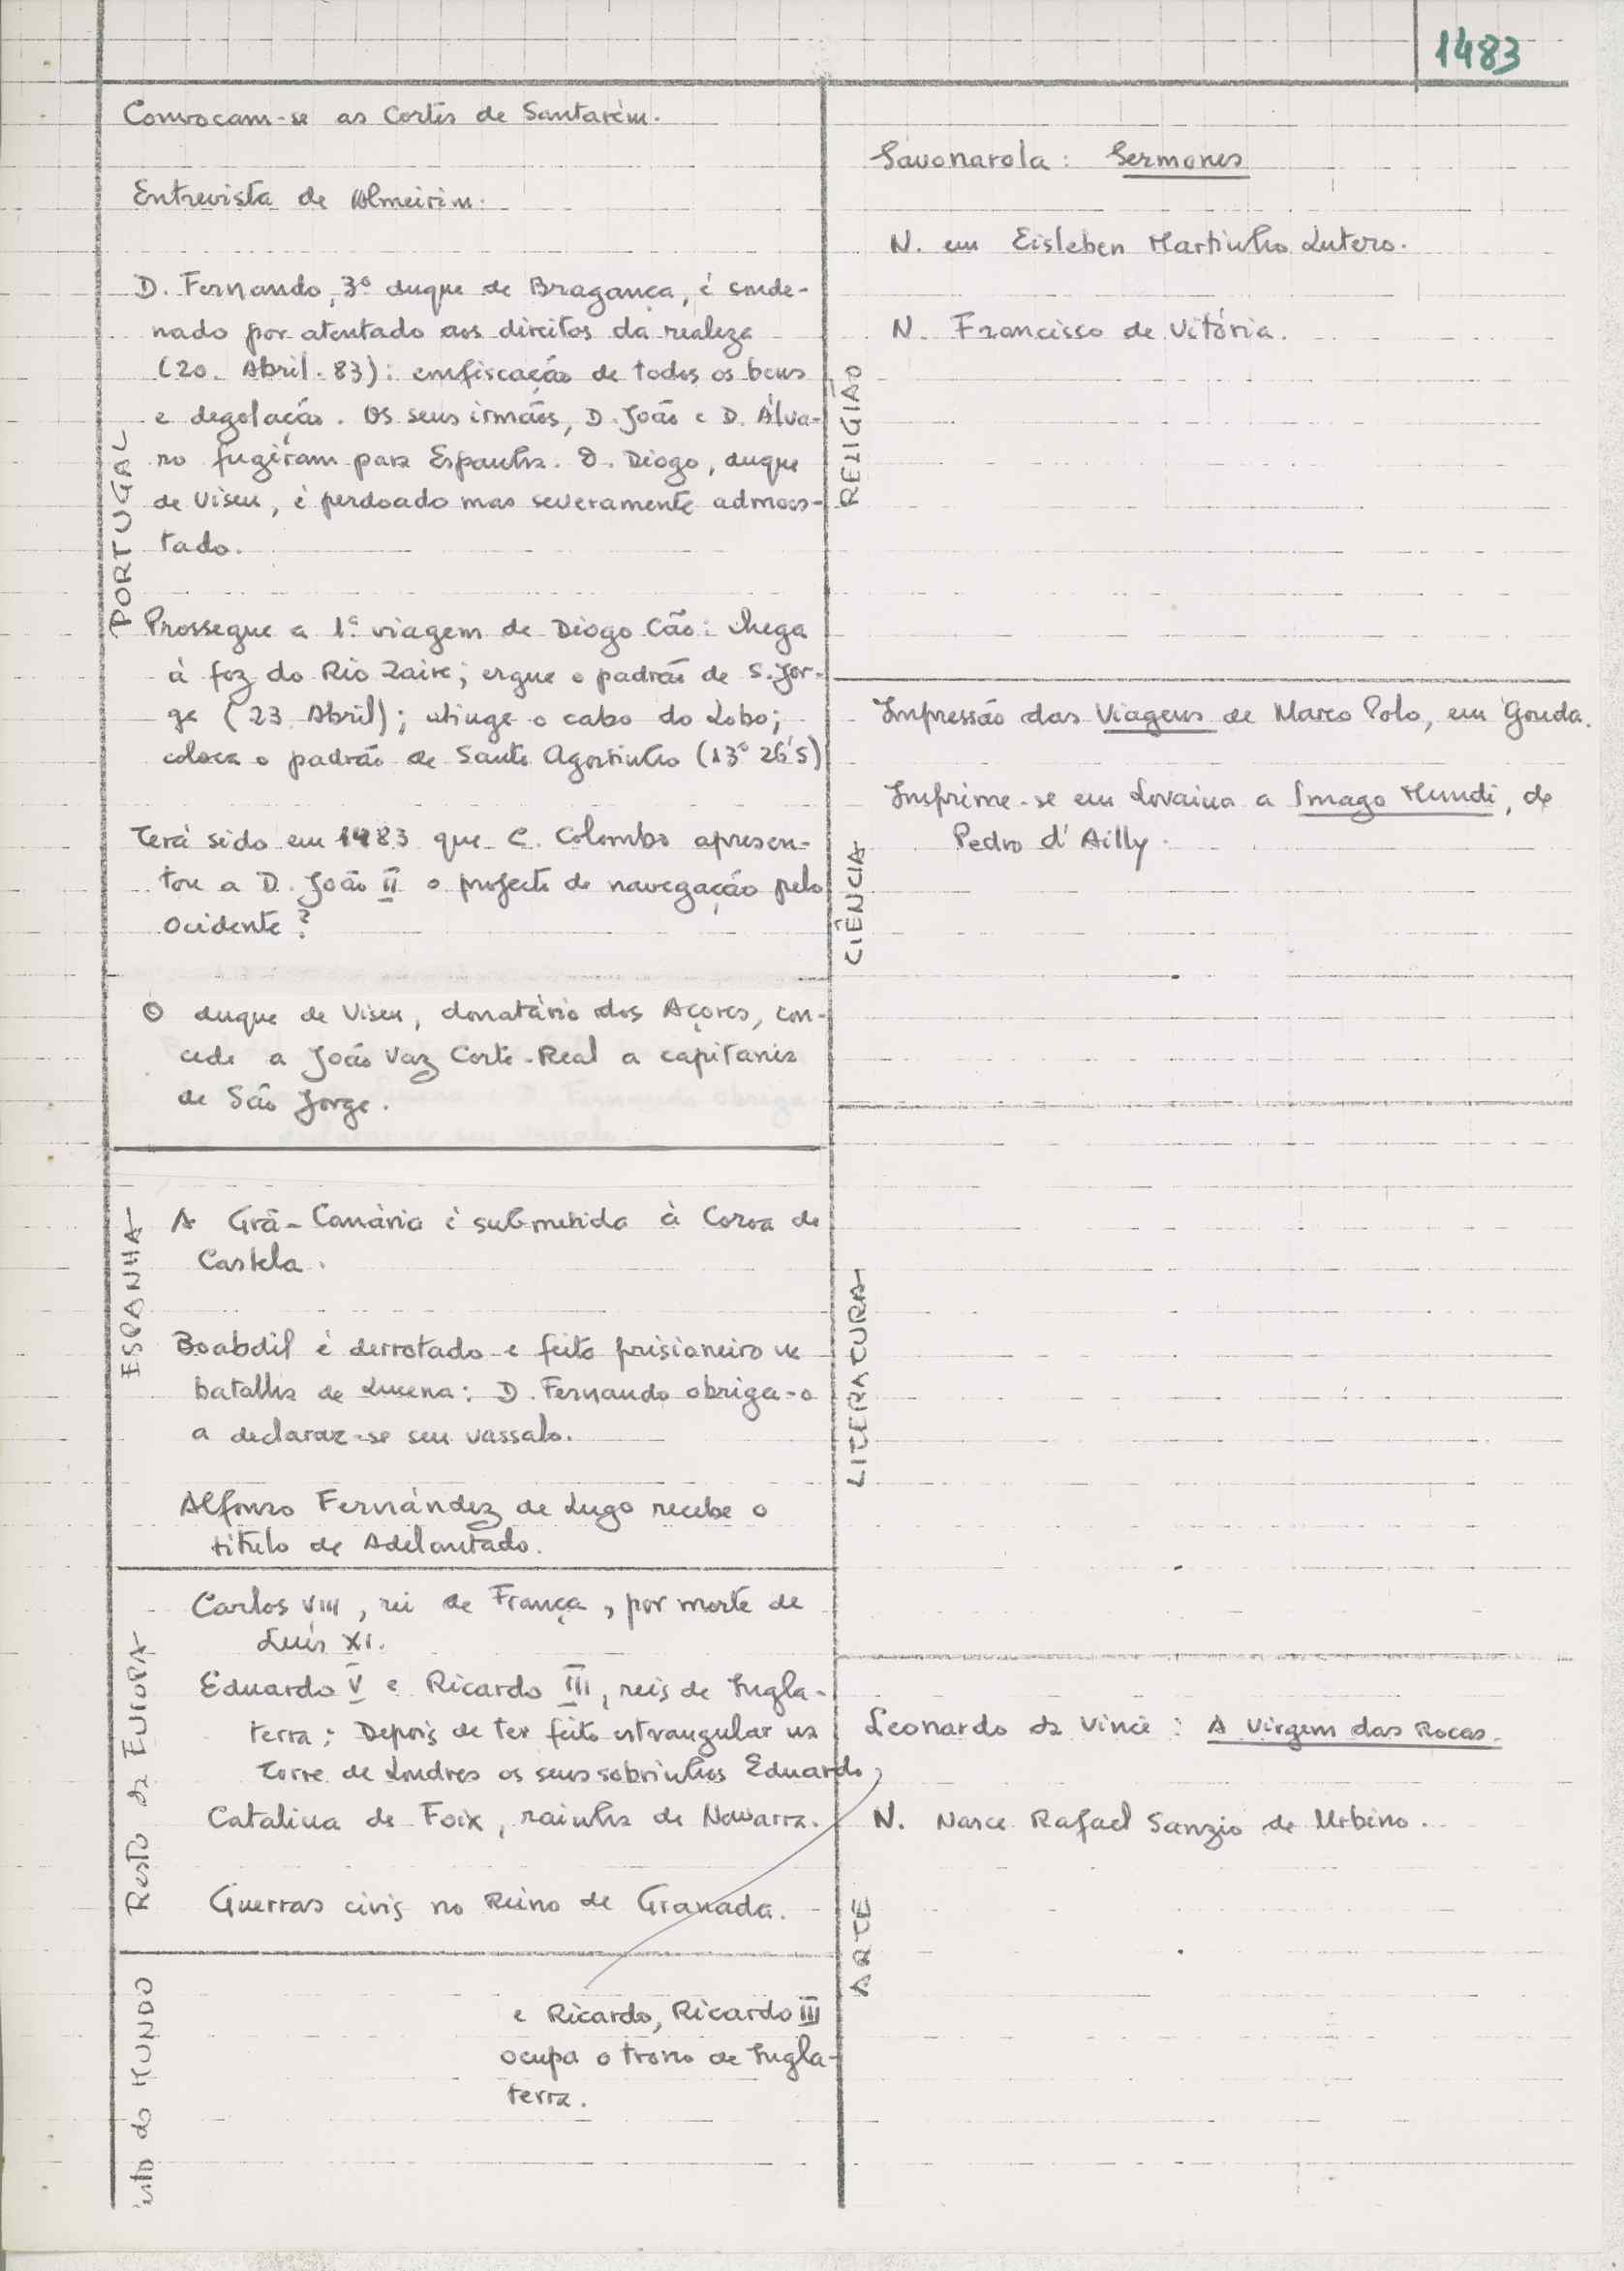 1483
PORTUGAL
Convocam-se as Cortes de Santarém.
Entrevista de Almeirim.
D. Fernando, 3º duque de Bragança, é conde-
nado por atentado aos direitos da realeza
(20. Abril. 83): confiscação de todos os bens
e degolação. Os seus irmãos, D. João e D. Álva-
ro fugiram para Espanha. D. Diogo, duque
de Viseu, é perdoado mas severamente admoes-
tado.
Prossegue a 1ª viagem de Diogo Cão: chega
à foz do Rio Zaire; ergue o padrão de S. Jor-
ge (23 Abril); atinge o cabo do Lobo;
coloca o padrão de Santo Agostinho (13° 26'S)
Terá sido em 1483 que C. Colombo apresen-
tou a D. João II o projecto de navegação pelo
Ocidente?
O duque de Viseu, donatário dos Açores, con-
cede a João Vaz Corte-Real a capitania
de São Jorge.
ESPANHA
A Grã-Canária é submetida à Coroa de
Castela.
Boabdil é derrotado e feito prisioneiro na
batalha de Lucena: D. Fernando obriga-o
a declarar-se seu vassalo.
Alfonso Fernández de Lugo recebe o
título de Adelantado.
Resto da EUROPA
Carlos VIII, rei de França, por morte de
Luís XI.
Eduardo V e Ricardo III, reis de Ingla-
terra; Depois de ter feito estrangular na
Torre de Londres os seus sobrinhos Eduardo
Catalina de Foix, rainha de Navarra.
Guerras civis no Reino de Granada.
esto do MUNDO
e Ricardo, Ricardo III
ocupa o trono de Ingla-
terra.
RELIGIÃO
Savonarola: Sermones
N. em Eisleben Martinho Lutero.
N. Francisco de Vitória.
CIÊNCIA
Impressão das Viagens de Marco Polo, em Gouda.
Imprime-se em Lovaina a Imago Mundi, de
Pedro d'Ailly.
LITERATURA
ARTE
Leonardo da Vinci: A Virgem das Rocas.
N. Nasce Rafael Sanzio de Urbino.